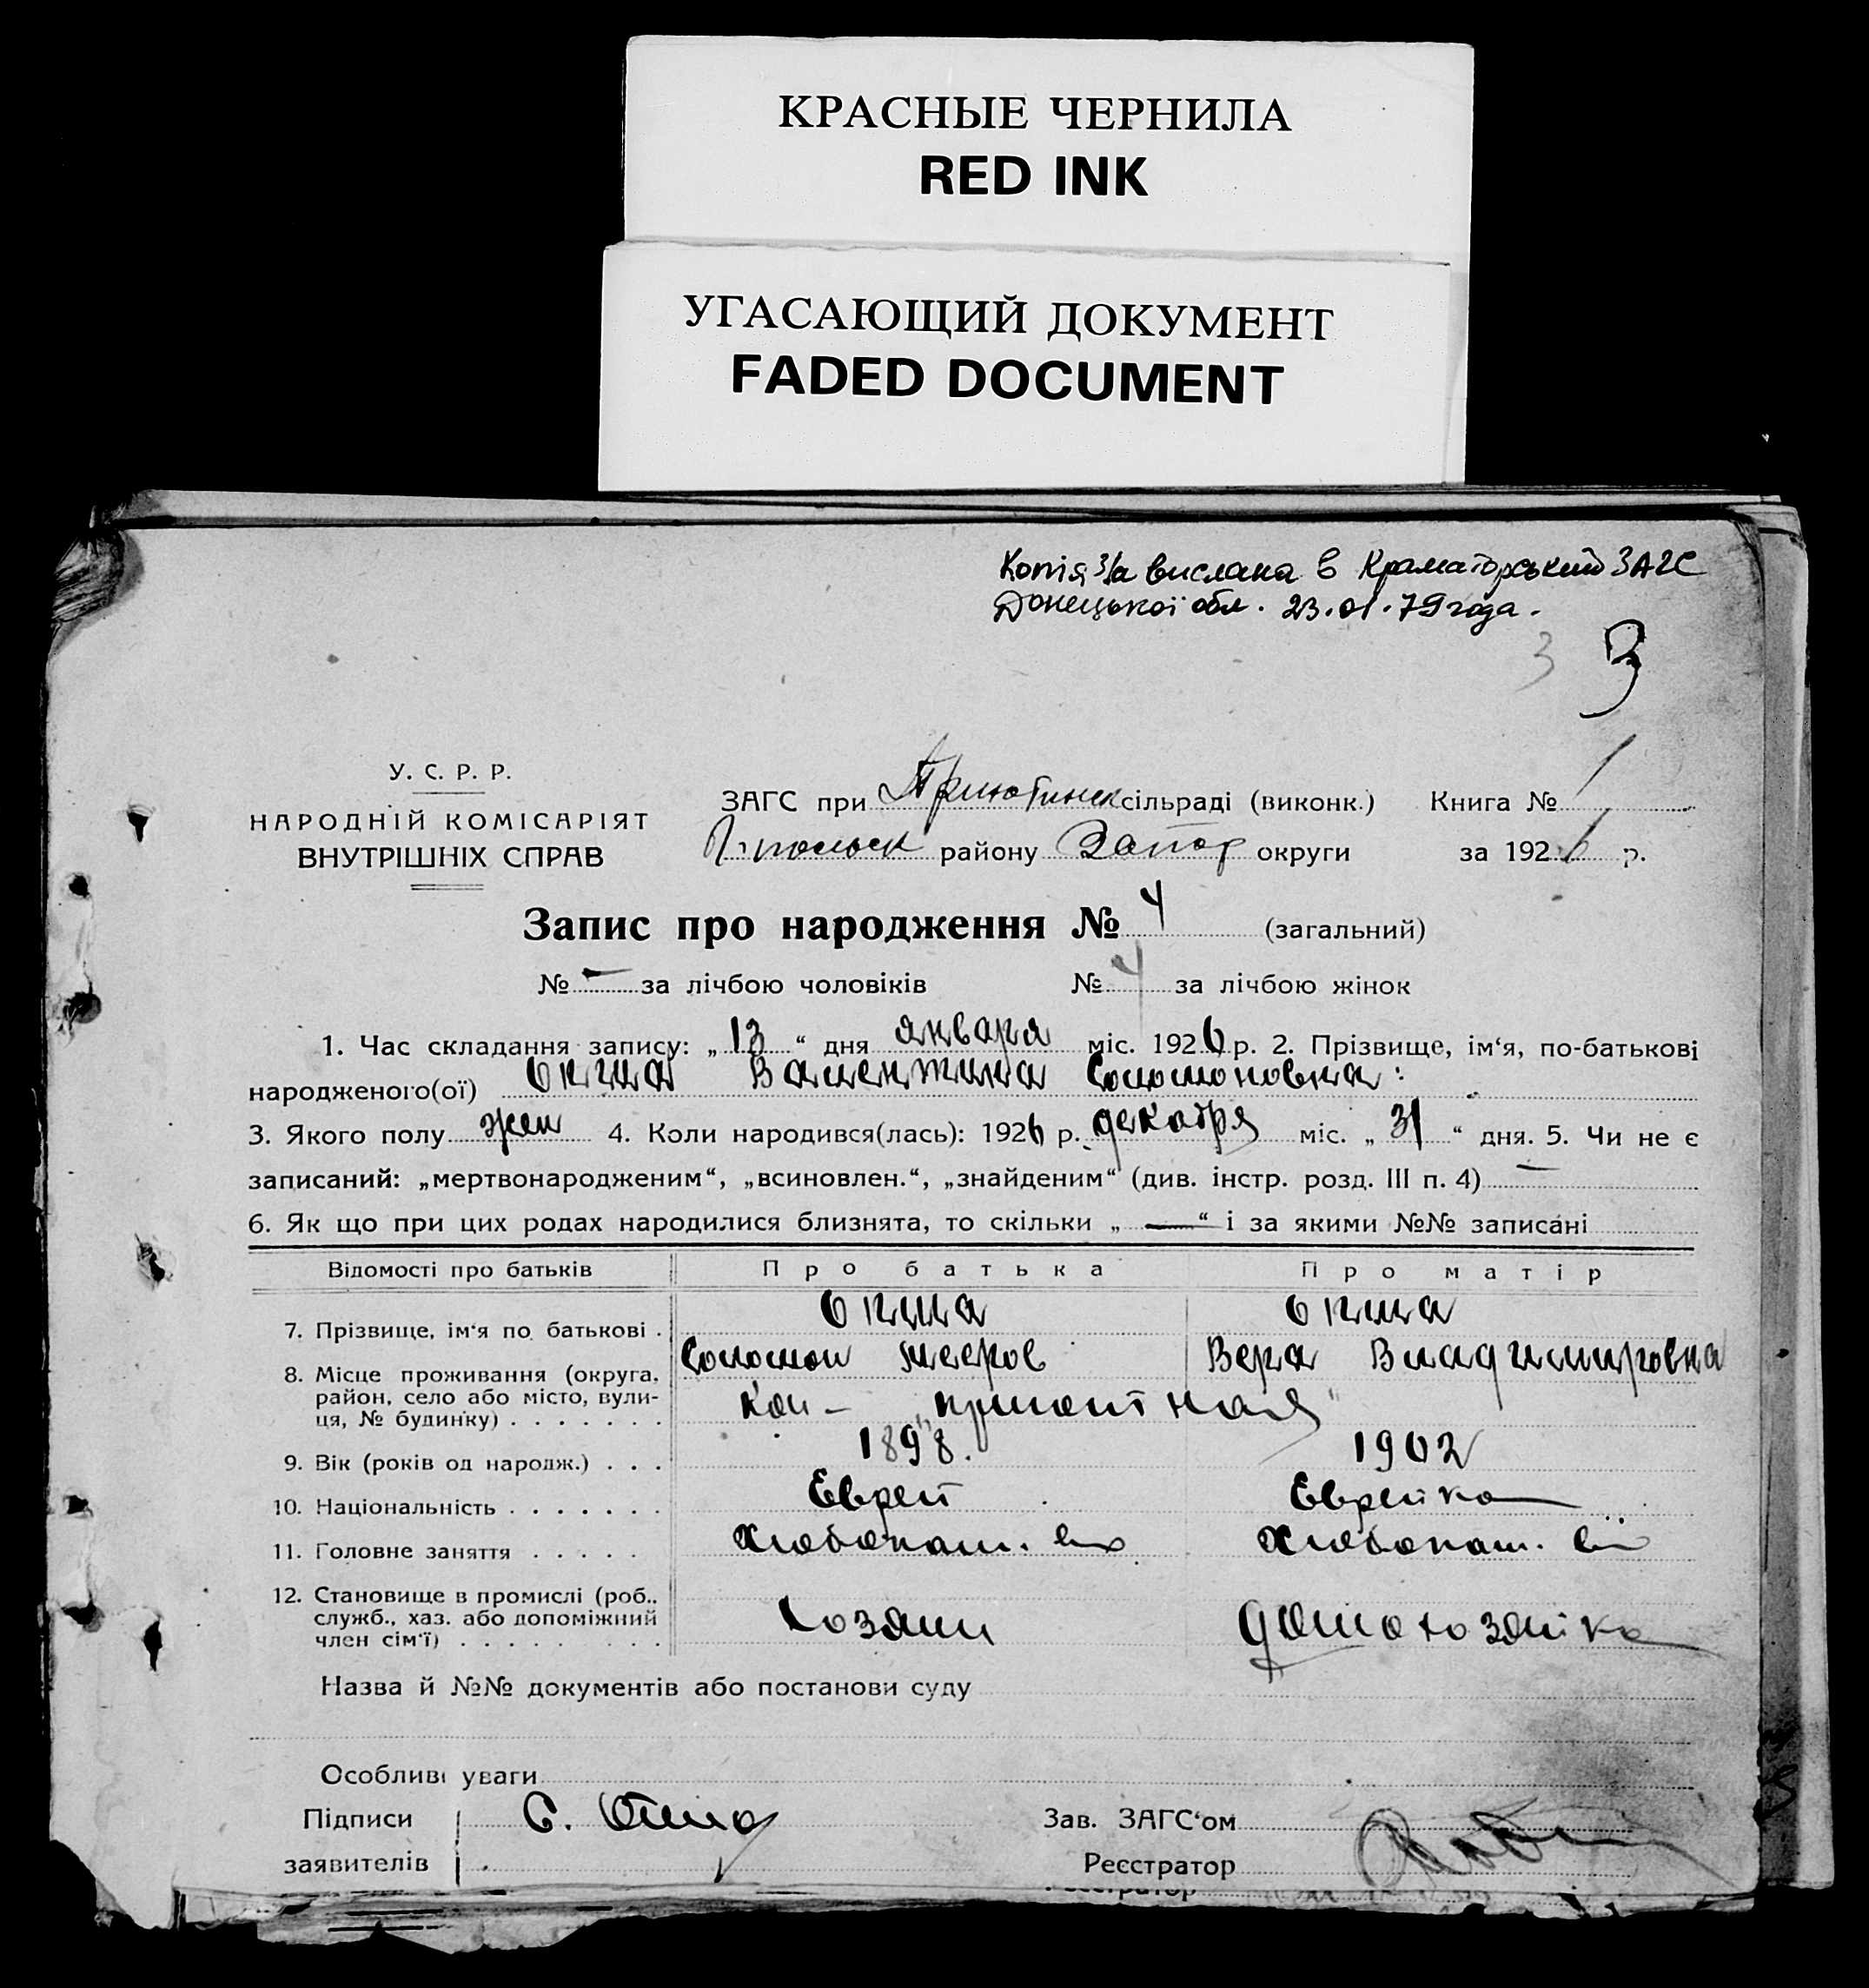 КРАСНЫЕ ЧЕРНИЛА
RED INK
УГАСАЮЩИЙ ДОКУМЕНТ
FADED DOCUMENT
Копія з/а вислана в Краматорський ЗАГС
Донецької обл. 23.01.79 года.
3 3
У. С. Р. Р.
НАРОДНІЙ КОМІСАРІЯТ
ВНУТРІШНІХ СПРАВ
ЗАГС при Приютинск сільраді (виконк.) Книга № 1
району Запор округи за 1926 р.
Запис про народження № 4 (загальний)
№ – за лічбою чоловіків № 4 за лічбою жінок
1. Час складання запису: „13“ дня января міс. 1926 р. 2. Прізвище, ім‘я, по-батькові
народженого(ої) Валентина Соломоновна
3. Якого полу жен 4. Коли народився(лась): 1926 р. декабря міс. „31“ дня. 5. Чи не є
записаний: „мертвонародженим“, „всиновлен.“, „знайденим“ (див. інстр. розд. III п. 4) —
6. Як що при цих родах народилися близнята, то скільки „—“ і за якими №№ записані
Відомості про батьків Про батька Про матір
7. Прізвище, ім‘я по батькові .
Соломон Мееров Вера Владимировна
8. Місце проживання (округа, район, село або місто, вулиця, № будинку) . . . . . . .
Кол – „Приютная“
9. Вік (років од народж.) . . . 1898. 1902
10. Національність . . . . . . . Еврей Еврейка
11. Головне заняття . . . . . Хлебопаш. Хлебопаш.
12. Становище в промислі (роб., служб., хаз. або допоміжний член сім‘ї) . . . . . . . . Хозяин Домохозяйка
Назва й №№ документів або постанови суду
Особливі уваги
Підписи
заявителів
С.
Зав. ЗАГС‘ом
Реєстратор
Реєстратор